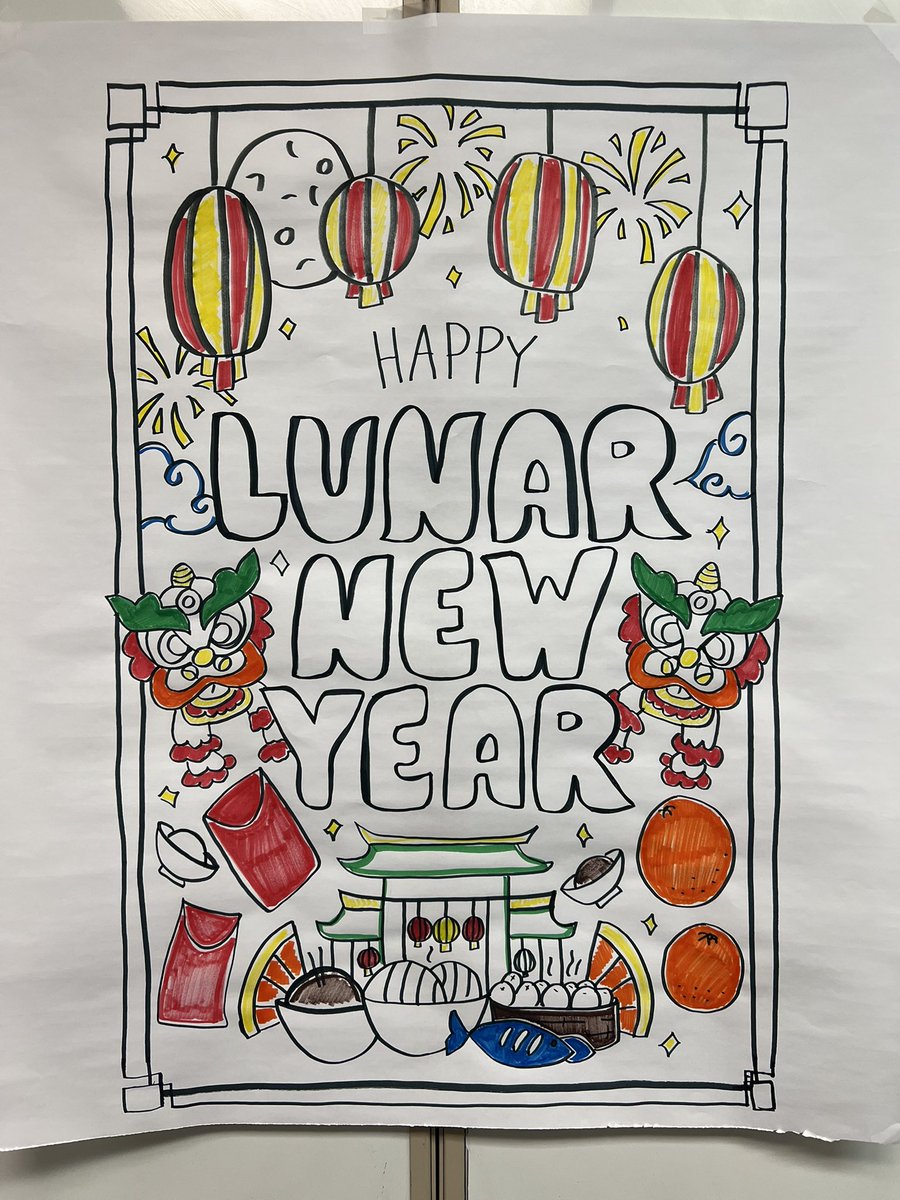 HAPPY
LUNAR
NEW
YEAR